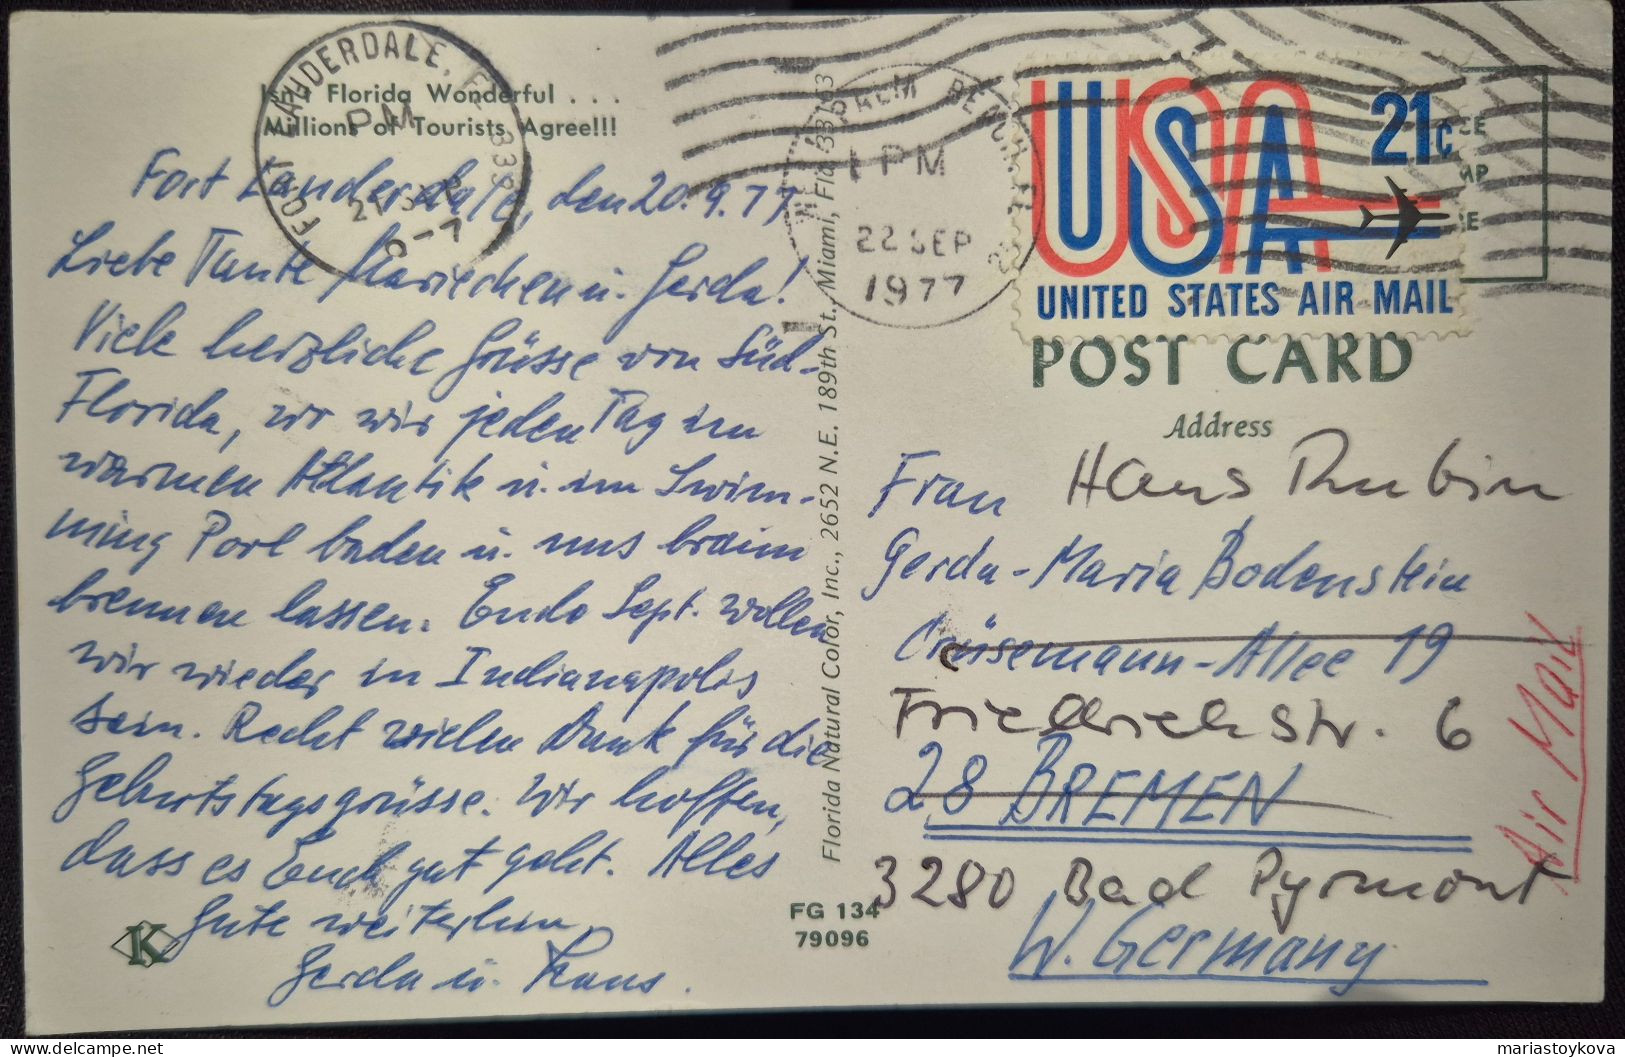 Isn't Florida Wonderful . . .
Millions of Tourists Agree!!!
FORT LAUDERDALE, FL 333
PM
21 SEP
6-7
Fort Lauderdale, den 20.9.77
Liebe Tante Mariechen u. Gerda!
Viele herzliche Grüsse von Süd-
Florida, wo wir jeden Tag im
warmen Atlantik u. im Swim-
ming Pool baden u. uns braun
brennen lassen. Ende Sept. wollen
wir wieder in Indianapolis
sein. Recht vielen Dank für die
Geburtstagsgrüsse. Wir hoffen,
dass es Euch gut geht. Alles
Gute weiterhin
Gerda u. Hans.
K
Florida Natural Color, Inc., 2652 N.E. 189th St., Miami, Fla. 33163
FG 134
79096
WEST PALM BEACH, FL
1 PM
22 SEP
1977
USA 21c
UNITED STATES AIR MAIL
POST CARD
Address
Frau Hans Rubin
Gerda-Maria Bodenstein
Crüsemann-Allee 19
Friedrichstr. 6
28 BREMEN
3280 Bad Pyrmont
W. Germany
Air Mail
delcampe.net
mariastoykova